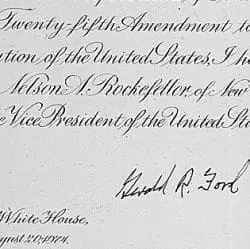 Twenty-fifth Amendment to
ution of the United States, I h
Nelson A. Rockefeller, of New
e Vice President of the United Sta
Gerald R. Ford
White House,
gust 20, 1974.